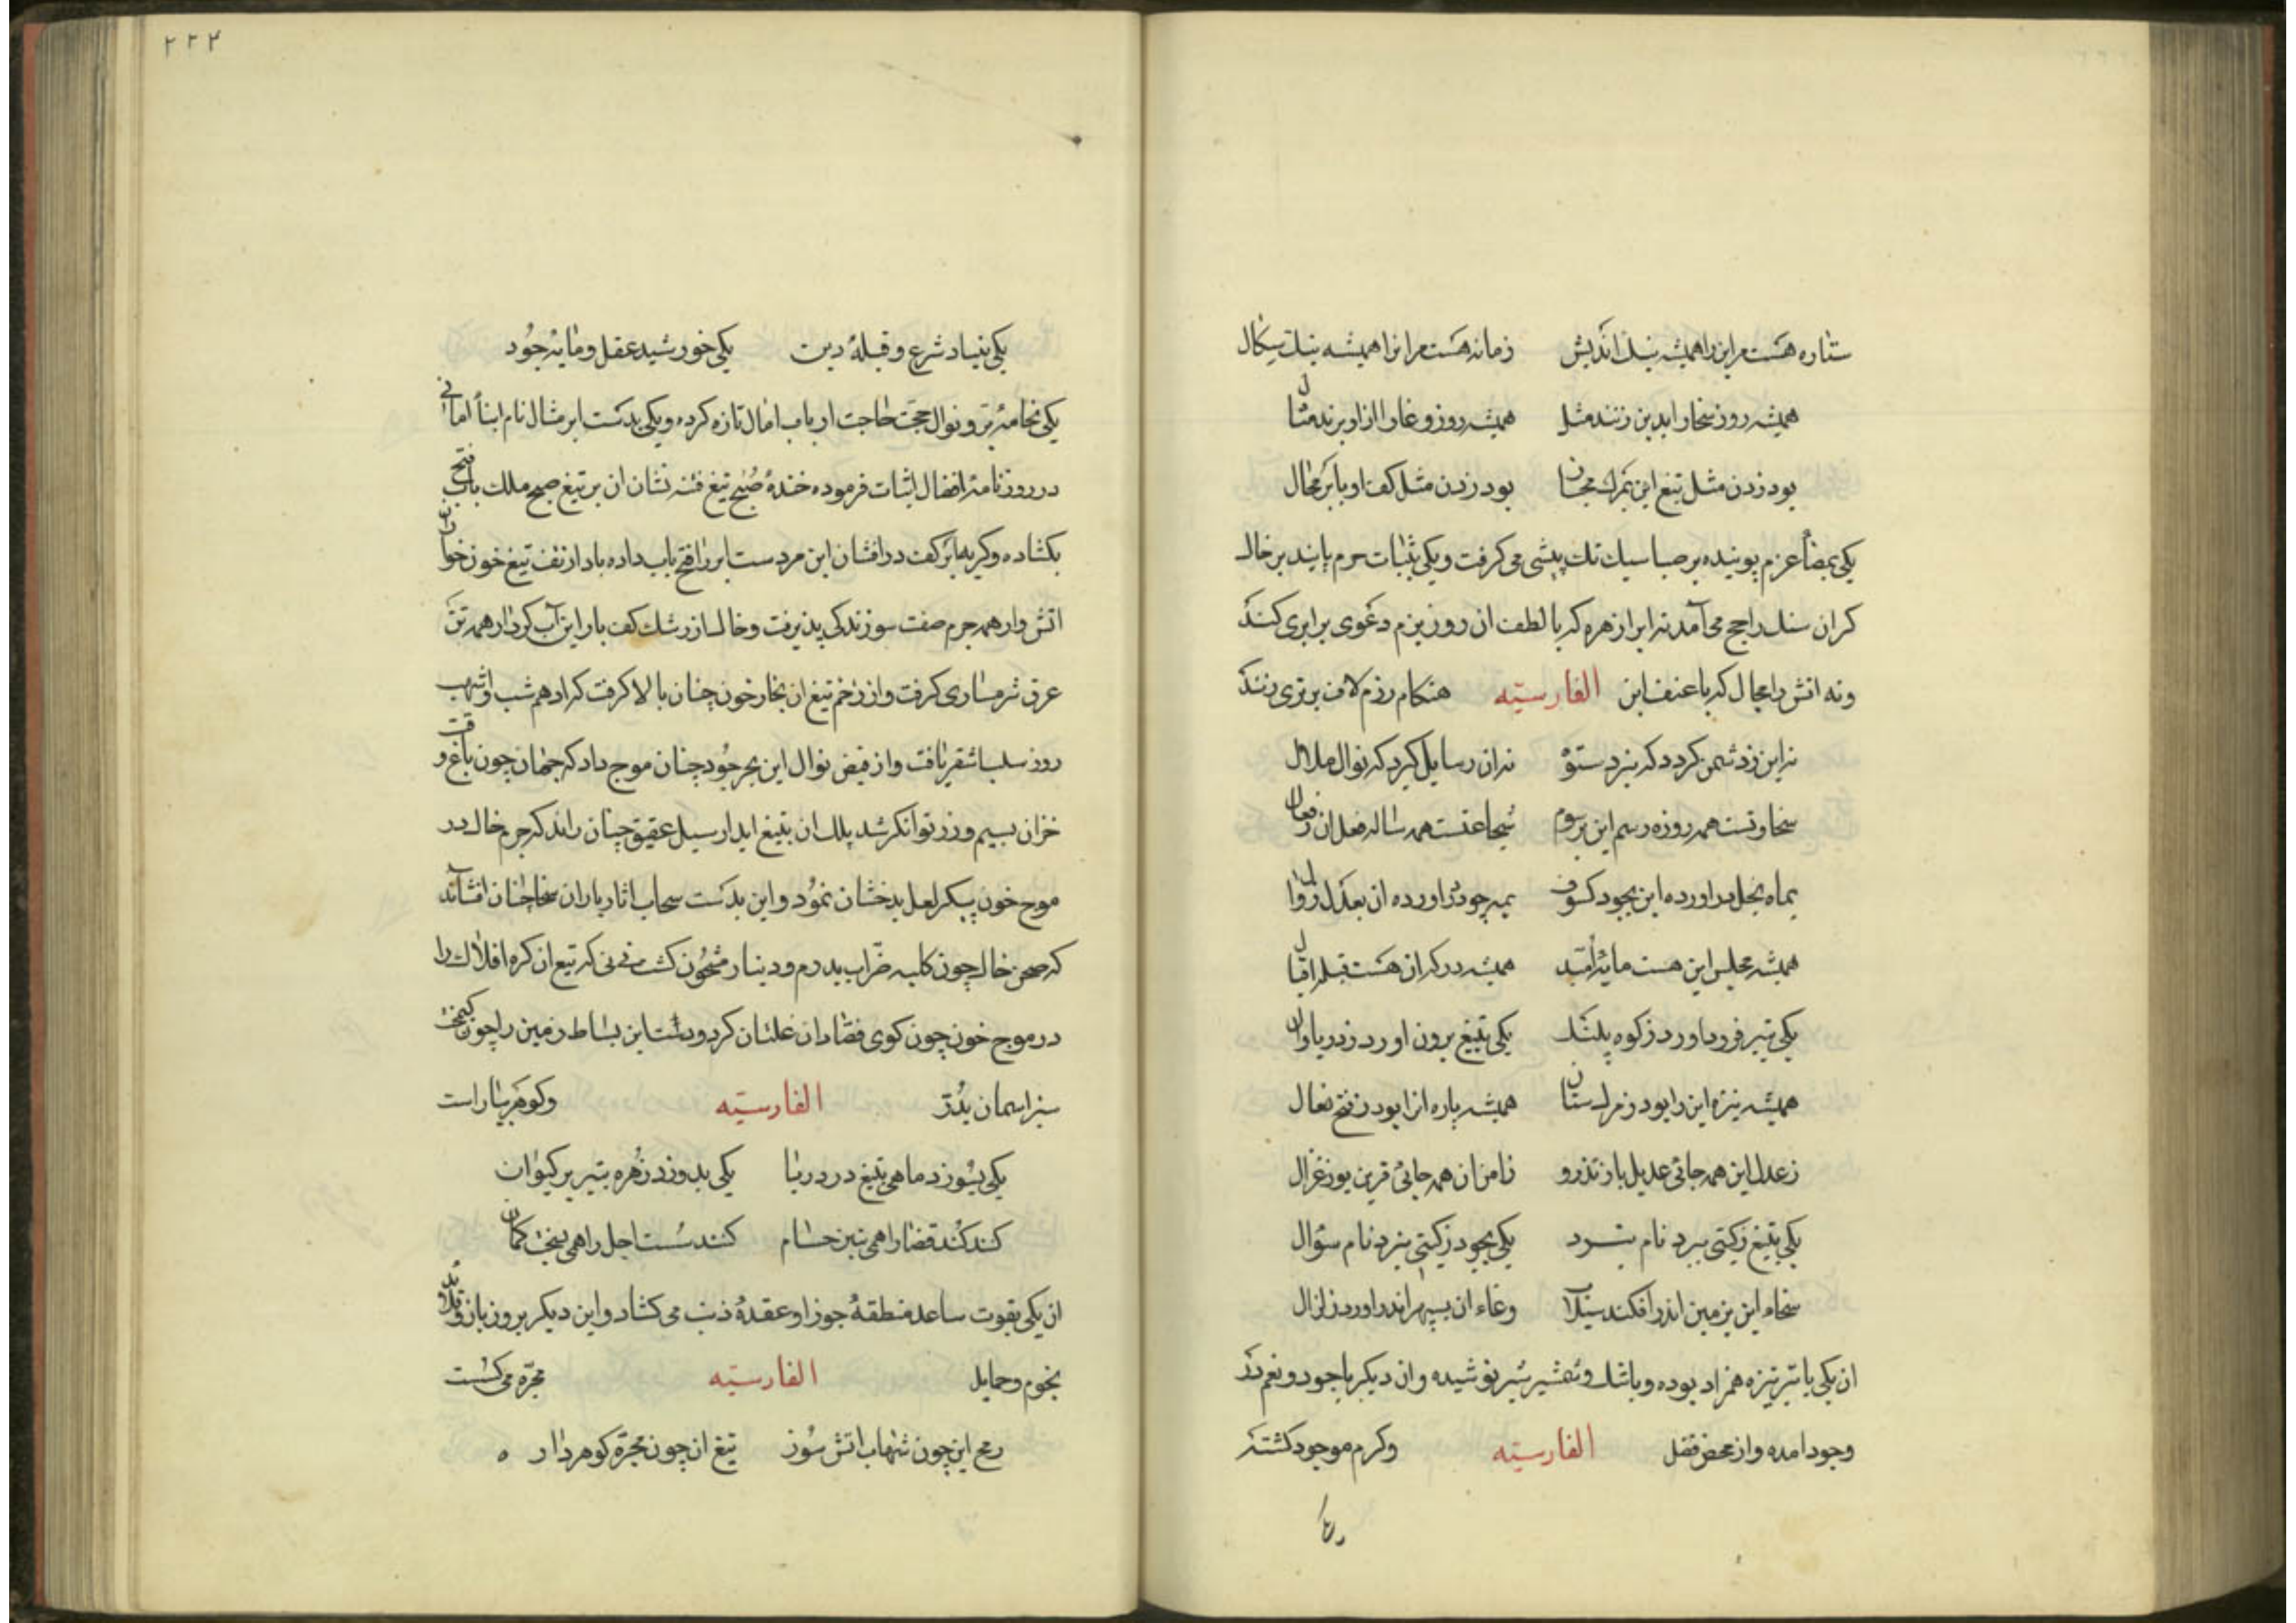 ستاره هست مر این را همیشه نیک اندیش زمانه هست مر آنرا همیشه نیک سکال
همیشه روز سخا را بدین زنند مثل همیشه روز وغا را ازاو برند مثال
بود زدن مثل تیغ این بمرك مجاز بود زدن مثل کف او بابر محال
یکی بمضاء عزم پوینده بر صبا سبک تک پیشی می کرفت و یکی بثبات حزم پاینده بر خاک
کران سنک راجح می آمد نه ابر از هره که با لطف ان روز بزم دعوی برابری کند
ونه اتش را مجال که با عنف این الفارسیّه هنکام رزم لاف برتری زند
نه این زدشمن کردد که نبرد ستوه نه ان ز سایل کیرد که نوال ملال
سخاوتست همه روزه رسم این بر سوم شجاعتست همه ساله فعل ان
بماه بخل در اورده این بجود کسوف اورده ان بعدل زوال
همیشه مجلس این هست مایهٔ امّید همیشه در که ان هست قبلهٔ اقبال
یکی بتیر فرود اورد ز کوه پلنک یکی بتیغ برون اورد ز دریا وال
همیشه نیزه این را بود ستان همیشه باره انرا بود ز فتح نعال
ز عدل این همه جائی عدیل باز تذرو ز امن ان همه جائی قرین یوز غزال
یکی بتیغ ز کیتی ببرد نام نبرد یکی بجود ز کیتی ببرد نام سؤال
سخاء این بزمین اندر افکند سیلاب وغاء ان بسپهر اندر اورد زلزال
ان یکی با تیر نیزه همزاد بوده و با شمشیر شیر نوشیده و ان دیکر با جود و نعم در
وجود امده و از محض فضل الفارسیّه و کرم موجود کشته
۲۲۲
یکی بنیاد شرع و قبلهٔ دین یکی خورشید عقل و مایهٔ جود
یکی بخامهٔ نوال حجت حاجت ارباب امال تازه کرده و یکی بدست ابر مثال نام ابناء امانی
در روزنامهٔ افضال اثبات فرموده خندهٔ صبح تیغ فتنه نشان ان بر تیغ صبح ملک باب فتح
بکشاده و کریه ابر کف در افشان این مر دست ابر را فتح باب داده باد از تف تیغ خون خوار ان
اتش وار همه جرم صفت سوزندکی پذیرفت و خاک از رشک کف بار این آب کردار همه تن
عرق شرمساری کرفت و از زخم تیغ ان بخار خون چنان بالا کرفت که ادهم شب و اشهب
روز سلب اشقر یافت و از فیض نوال این بحر جود چنان موج داد که جهان چون باغ وقت
خزان بسیم و زر توانکر شد پلك ان بتیغ ابدار سیل عقیق چنان راند که جرم خاک در
موج خون پیکر لعل بدخشان نمود و این بدست سحاب اثار باران سخا چنان افشاند
که صحن خاک چون کلبه ضرّاب بدرم و دینار مشحون کشت نی نی که تیغ ان کره افلاک را
در موج خون چون کوی فضادان غلتان کرد و دست این بساط زمین را چون
سبز اسمان بدُرّ الفارسیّه و کوهر بیاراست
یکی بسوزد ماهی بتیغ در دریا یکی بدوزد زهره بتیر بر کیوان
کند کُند قضا را همی بتیز حسام کند سست اجل را همی بسخت کمان
ان یکی بقوت ساعد منطقهٔ جوزا و عقدهٔ ذنب می کشاد و این دیکر بروز بازو قلائد
نجوم و حمایل الفارسیّه مجرّه می کسست
رمح این چون شهاب اتش سوز تیغ ان چون مجرّه کوهردار ه